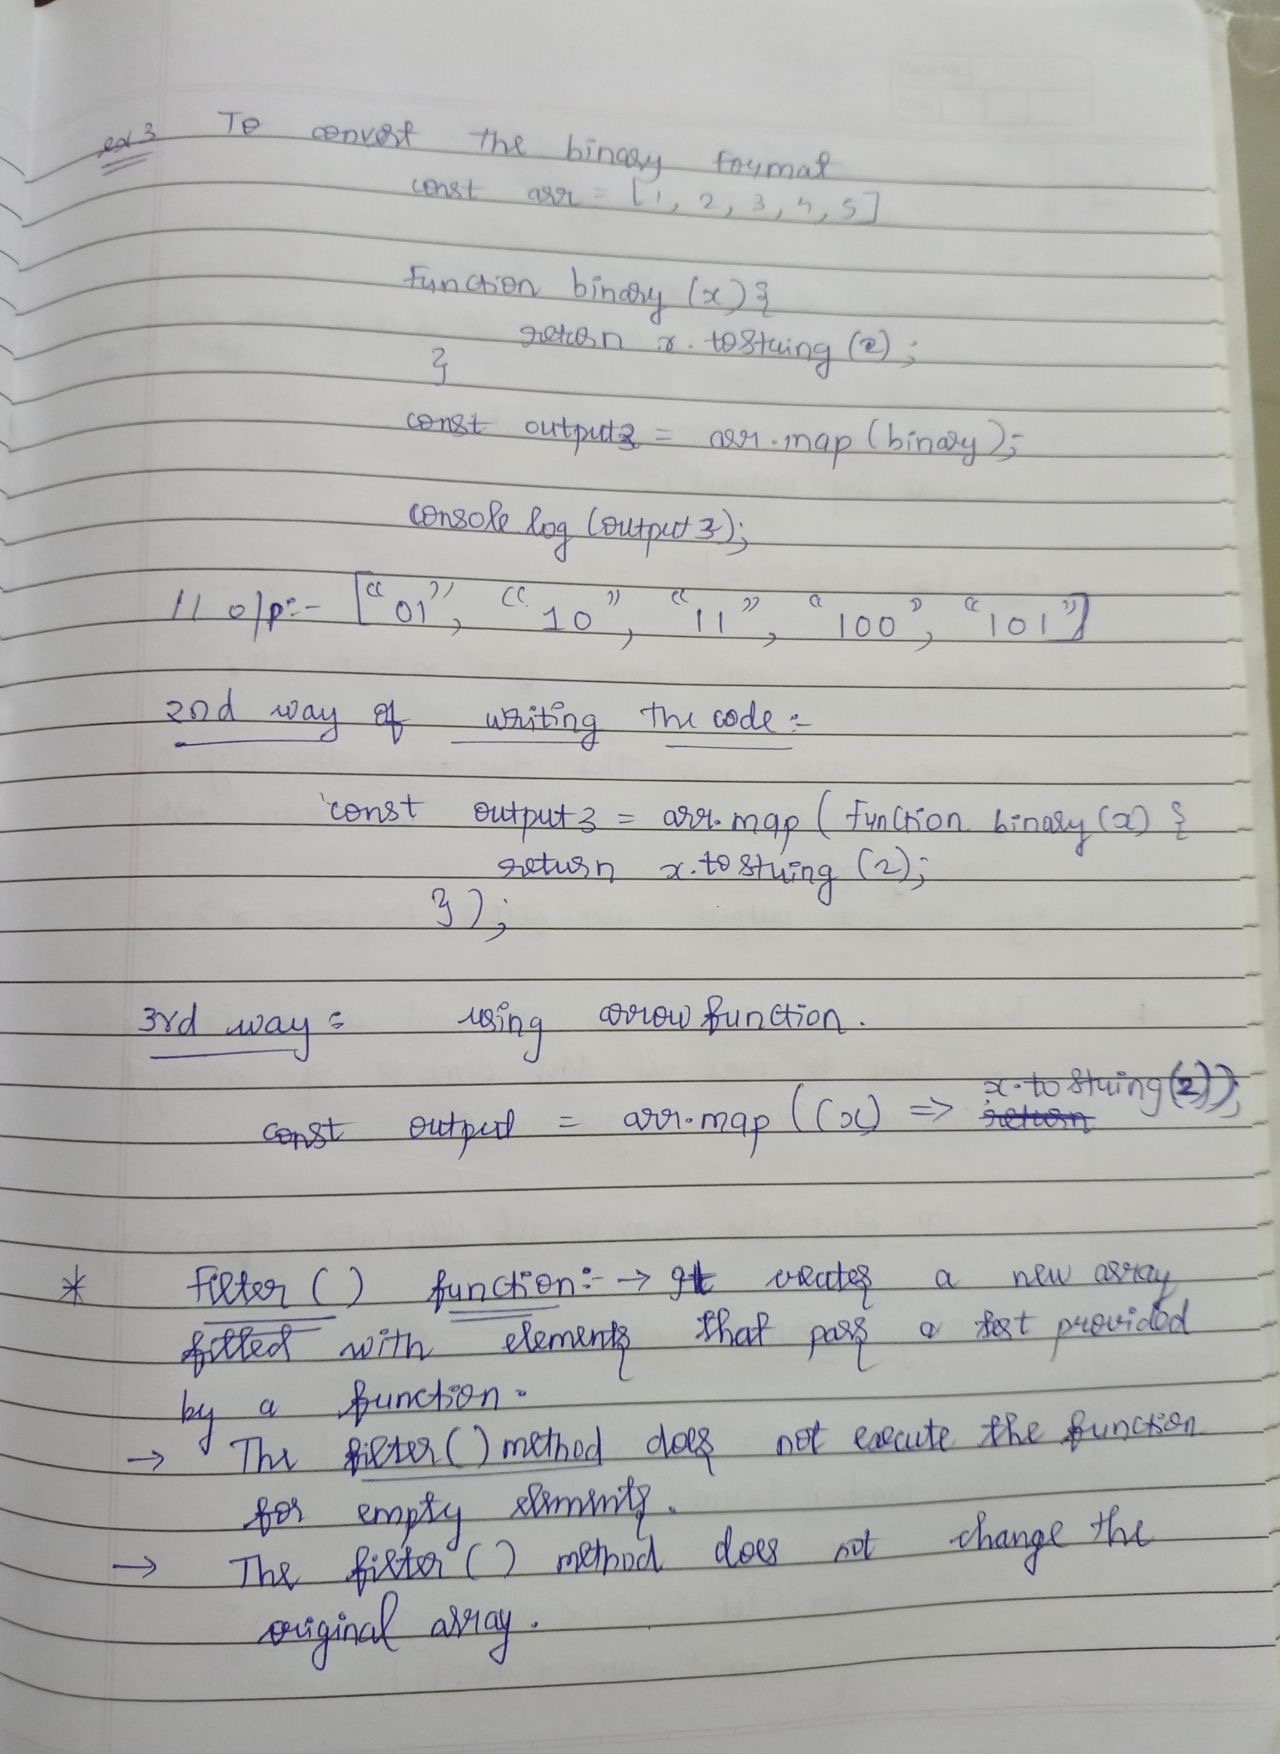 ex 3 To convert the binary format
const arr = [1, 2, 3, 4, 5]
function binary (x) {
return x.toString (2);
}
const output3 = arr.map (binary);
console log (output 3);
// o/p:- ["01", "10", "11", "100", "101"]
2nd way of writing the code :-
const output3 = arr.map ( function binary (x) {
return x.toString (2);
});
3rd way : using arrow function.
const output = arr.map ((x) => return x.toString(2));
* Filter () function:- → It creates a new array
filled with elements that pass a test provided
by a function.
→ The filter() method does not execute the function
for empty elements.
→ The filter () method does not change the
original array.